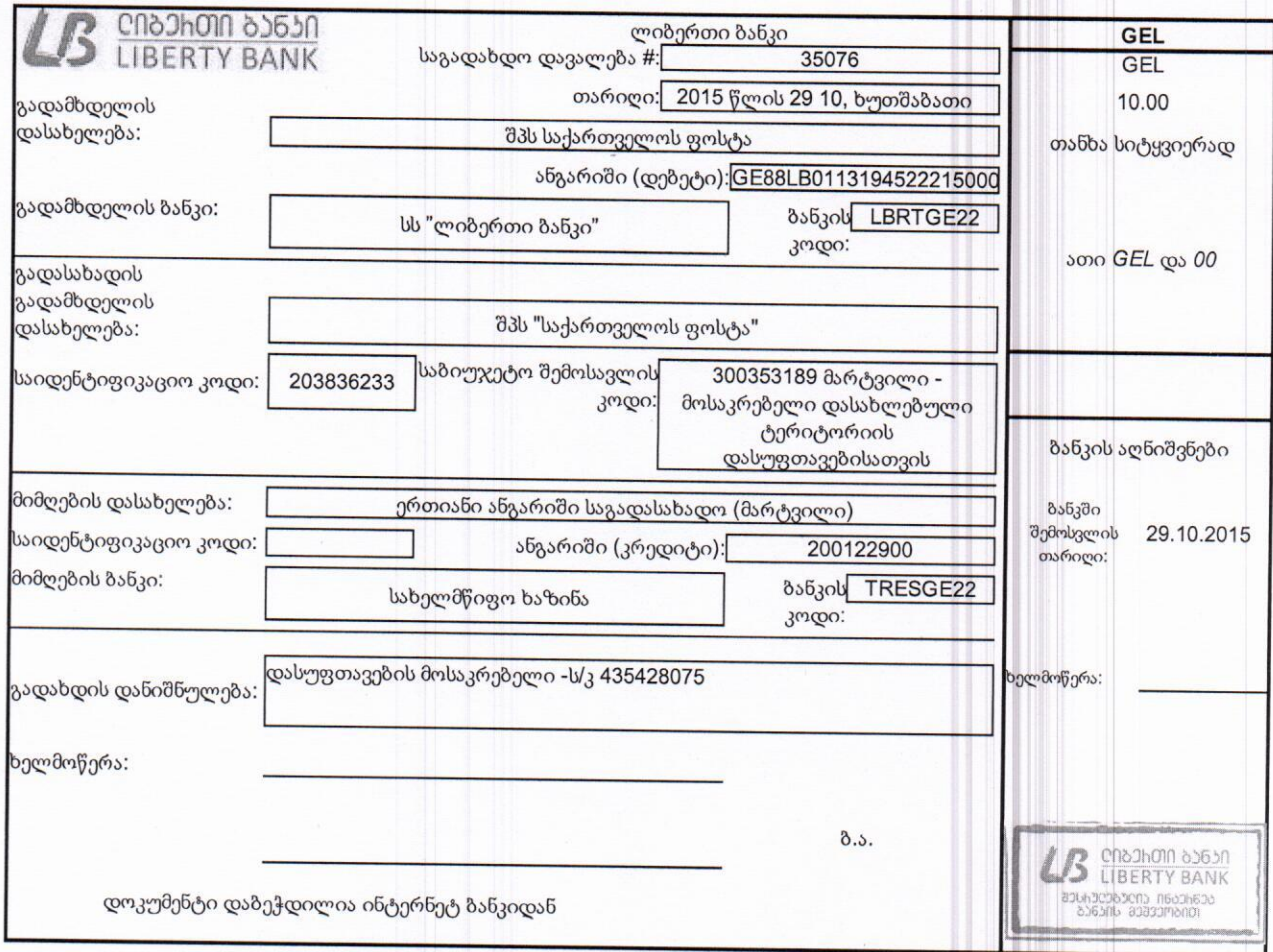 ᲚᲘᲑᲔᲠᲗᲘ ᲑᲐᲜᲙᲘ
LIBERTY BANK
ლიბერთი ბანკი
საგადახდო დავალება #: 35076
თარიღი: 2015 წლის 29 10, ხუთშაბათი
გადამხდელის
დასახელება:
შპს საქართველოს ფოსტა
ანგარიში (დებეტი): GE88LB0113194522215000
გადამხდელის ბანკი:
სს "ლიბერთი ბანკი"
ბანკის
კოდი:
LBRTGE22
გადასახადის
გადამხდელის
დასახელება:
შპს "საქართველოს ფოსტა"
საიდენტიფიკაციო კოდი: 203836233
საბიუჯეტო შემოსავლის
კოდი:
300353189 მარტვილი -
მოსაკრებელი დასახლებული
ტერიტორიის
დასუფთავებისათვის
მიმღების დასახელება: ერთიანი ანგარიში საგადასახადო (მარტვილი)
საიდენტიფიკაციო კოდი:
ანგარიში (კრედიტი): 200122900
მიმღების ბანკი:
სახელმწიფო ხაზინა
ბანკის
კოდი:
TRESGE22
გადახდის დანიშნულება:
დასუფთავების მოსაკრებელი -ს/კ 435428075
ხელმოწერა:
ბ.ა.
დოკუმენტი დაბეჭდილია ინტერნეტ ბანკიდან
GEL
GEL
10.00
თანხა სიტყვიერად
ათი GEL და 00
ბანკის აღნიშვნები
ბანკში
შემოსვლის
თარიღი:
29.10.2015
ხელმოწერა:
ᲚᲘᲑᲔᲠᲗᲘ ᲑᲐᲜᲙᲘ
LIBERTY BANK
ᲨᲔᲡᲠᲣᲚᲔᲑᲣᲚᲘᲐ ᲘᲜᲢᲔᲠᲜᲔᲢ
ᲑᲐᲜᲙᲘᲡ ᲛᲔᲨᲕᲔᲝᲑᲘᲗ